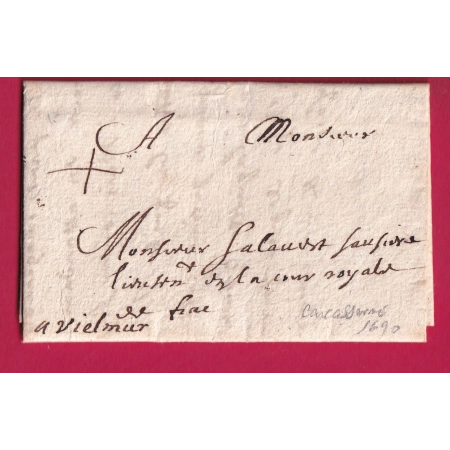 A Monsieur
Monsieur Salavert
lieuten^t en la cour royale
de fiac
a vielmur
Carcassonne
1690